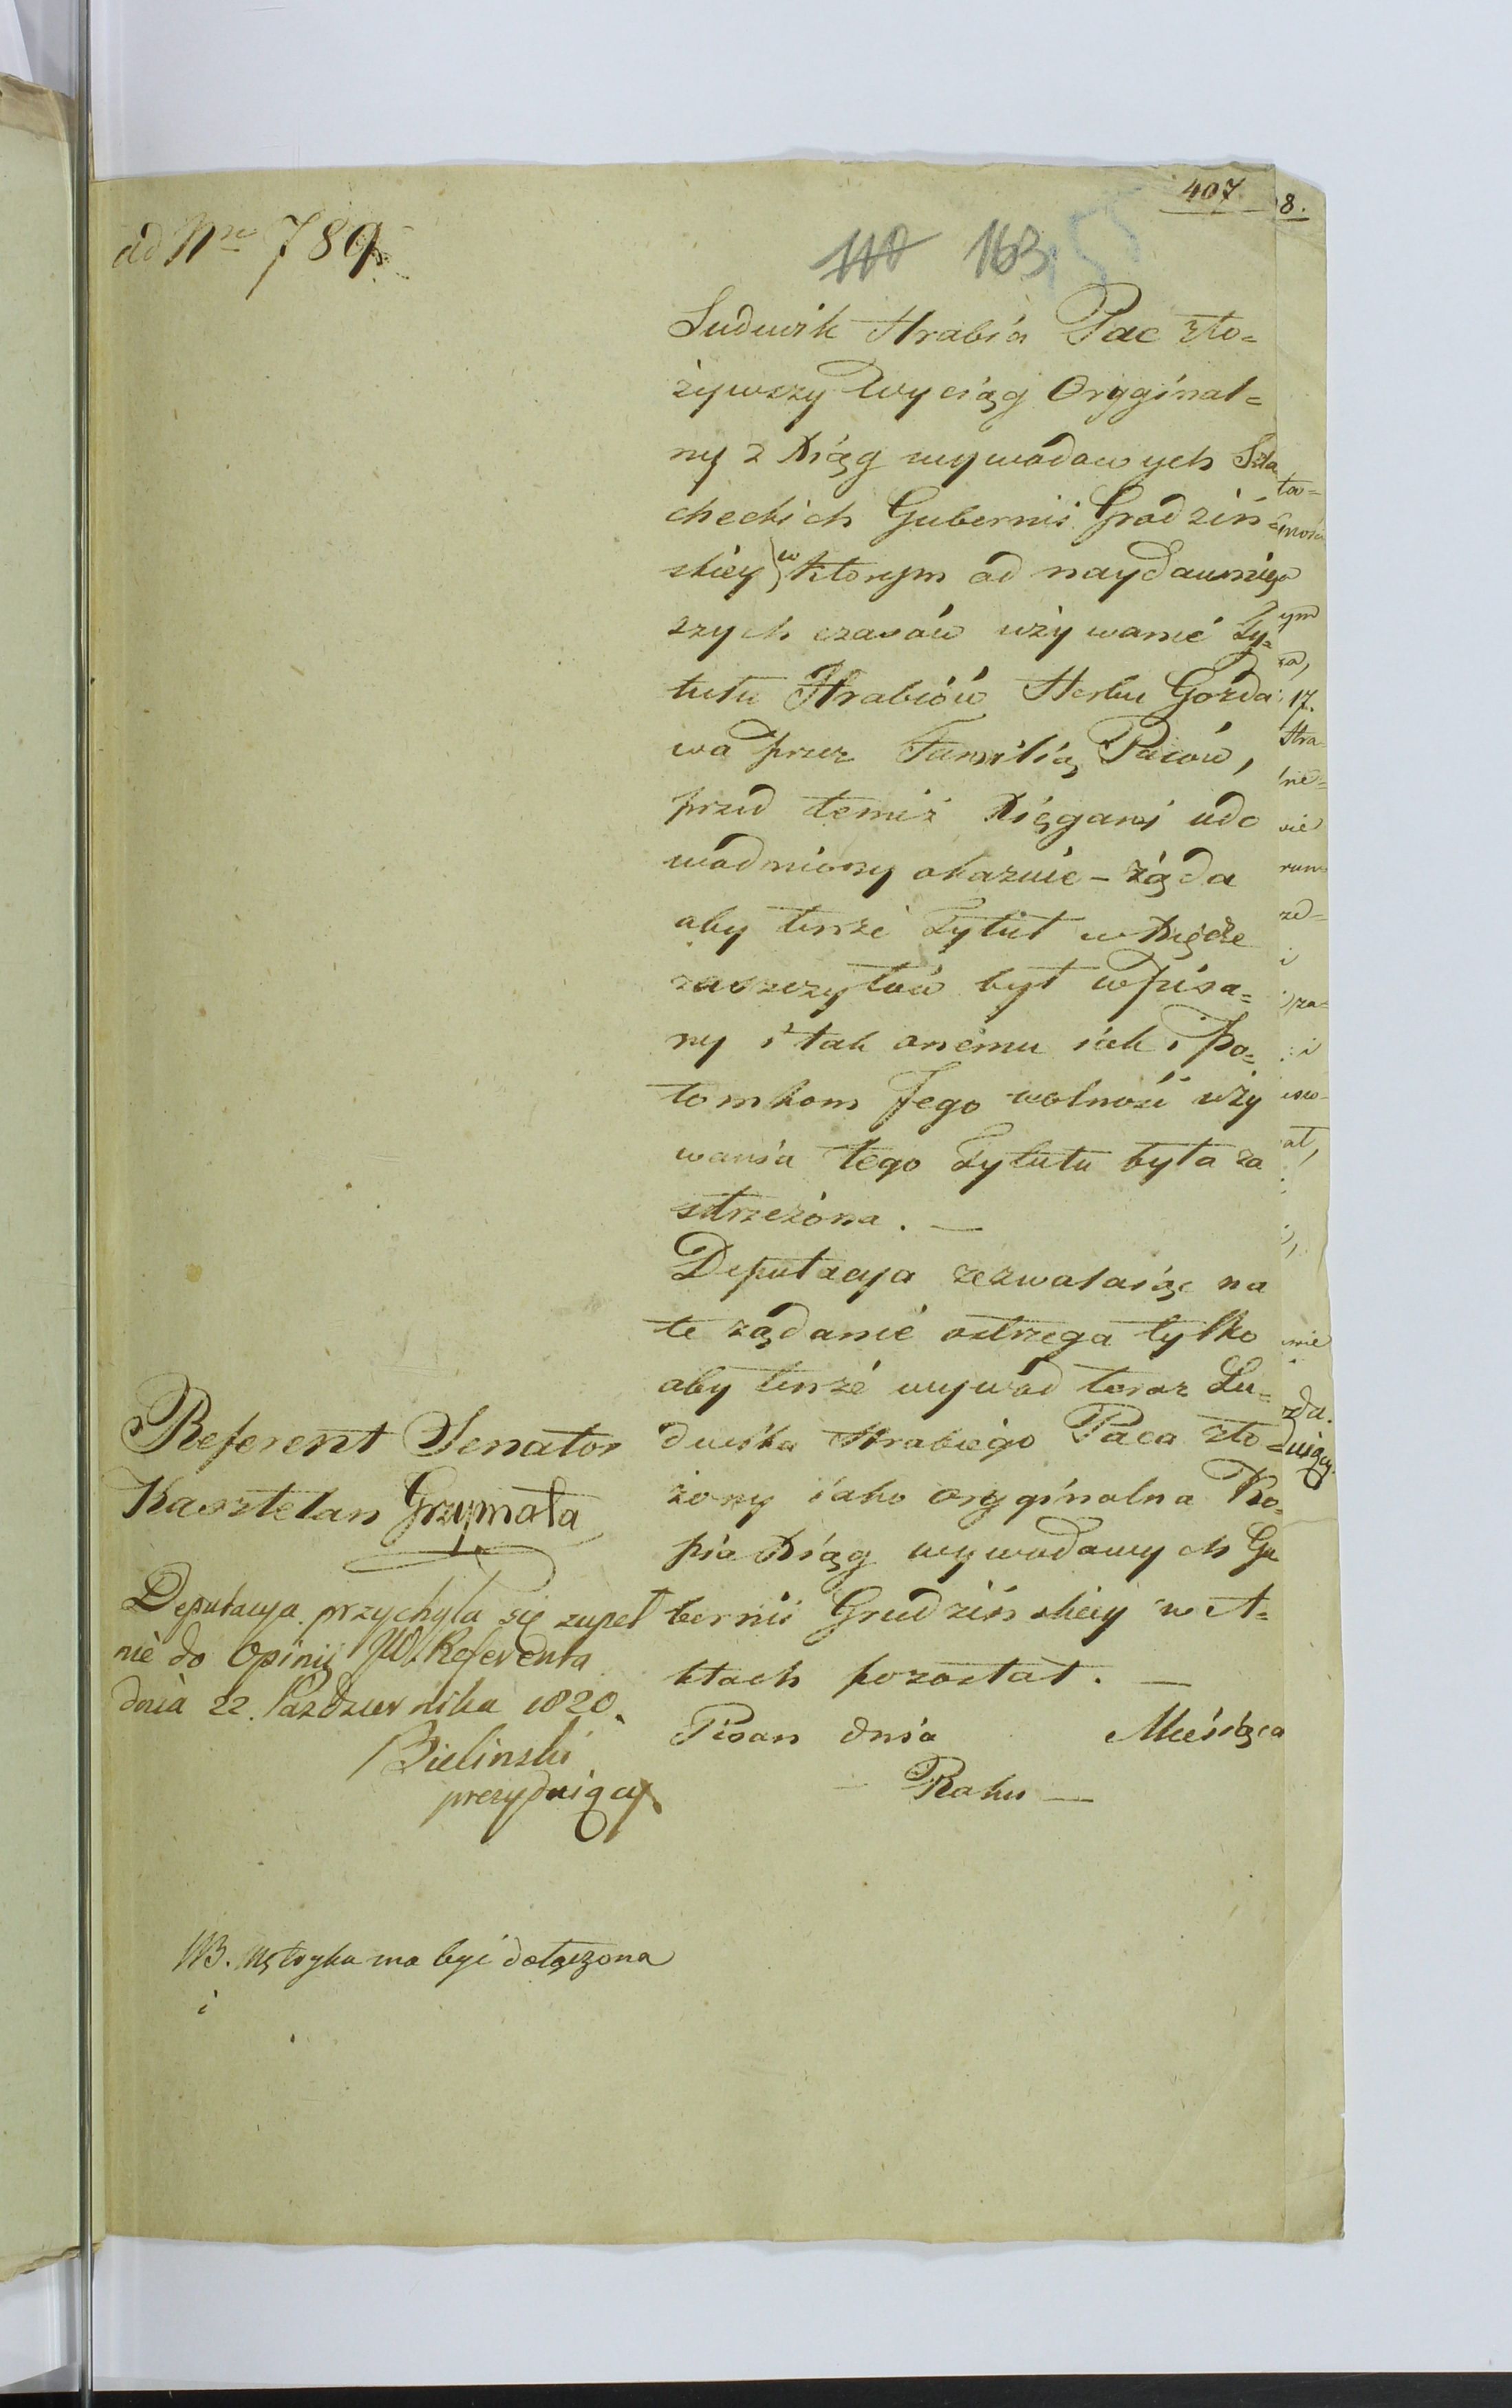 407
8.
ad Nro 789.
110 163
Ludwik Hrabia Pac zło=
żywszy Wyciąg Orygginal=
ny z Xiąg wywodowych Szla
checkich Gubernii Grodzień=
skiey w ktorym od naydawniey
szych czasów używanie Ty=
tułu Hrabiów Herbu Gozda
wa przez Familią Paców,
przed temiż Xięgami udo
wodniony okazuie – żąda
aby tenże Tytuł w Xiędze
zaszczytów był wpisa=
ny i tak onemu iak i Po=
tomkom Jego wolność uży
wania tego Tytułu była za
strzeżona. —
Deputacya zezwalaiąc na
te żądanie ostrzega tylko
aby tenże wywód teraz Lu=
dwika Hrabiego Paca zło
żony iako orygginalna Ko=
pia Xiąg wywodowych Gu
bernii Grudzińskiey w A=
ktach pozostał. —
Pisan dnia Miesiąca
— Roku —
Referent Senator
Kasztelan Grzymała
Deputacya przychyla się zupeł
nie do Opinii JW. Referenta
dnia 22. Października 1820.
Bielinski
prezyduiący
NB. Metryka ma być dołączona
i